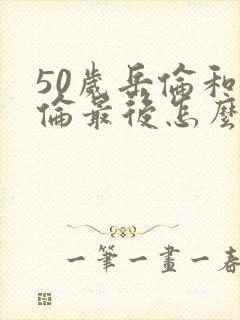 50歲岳倫和
倫最後怎麼
一筆一畫一春